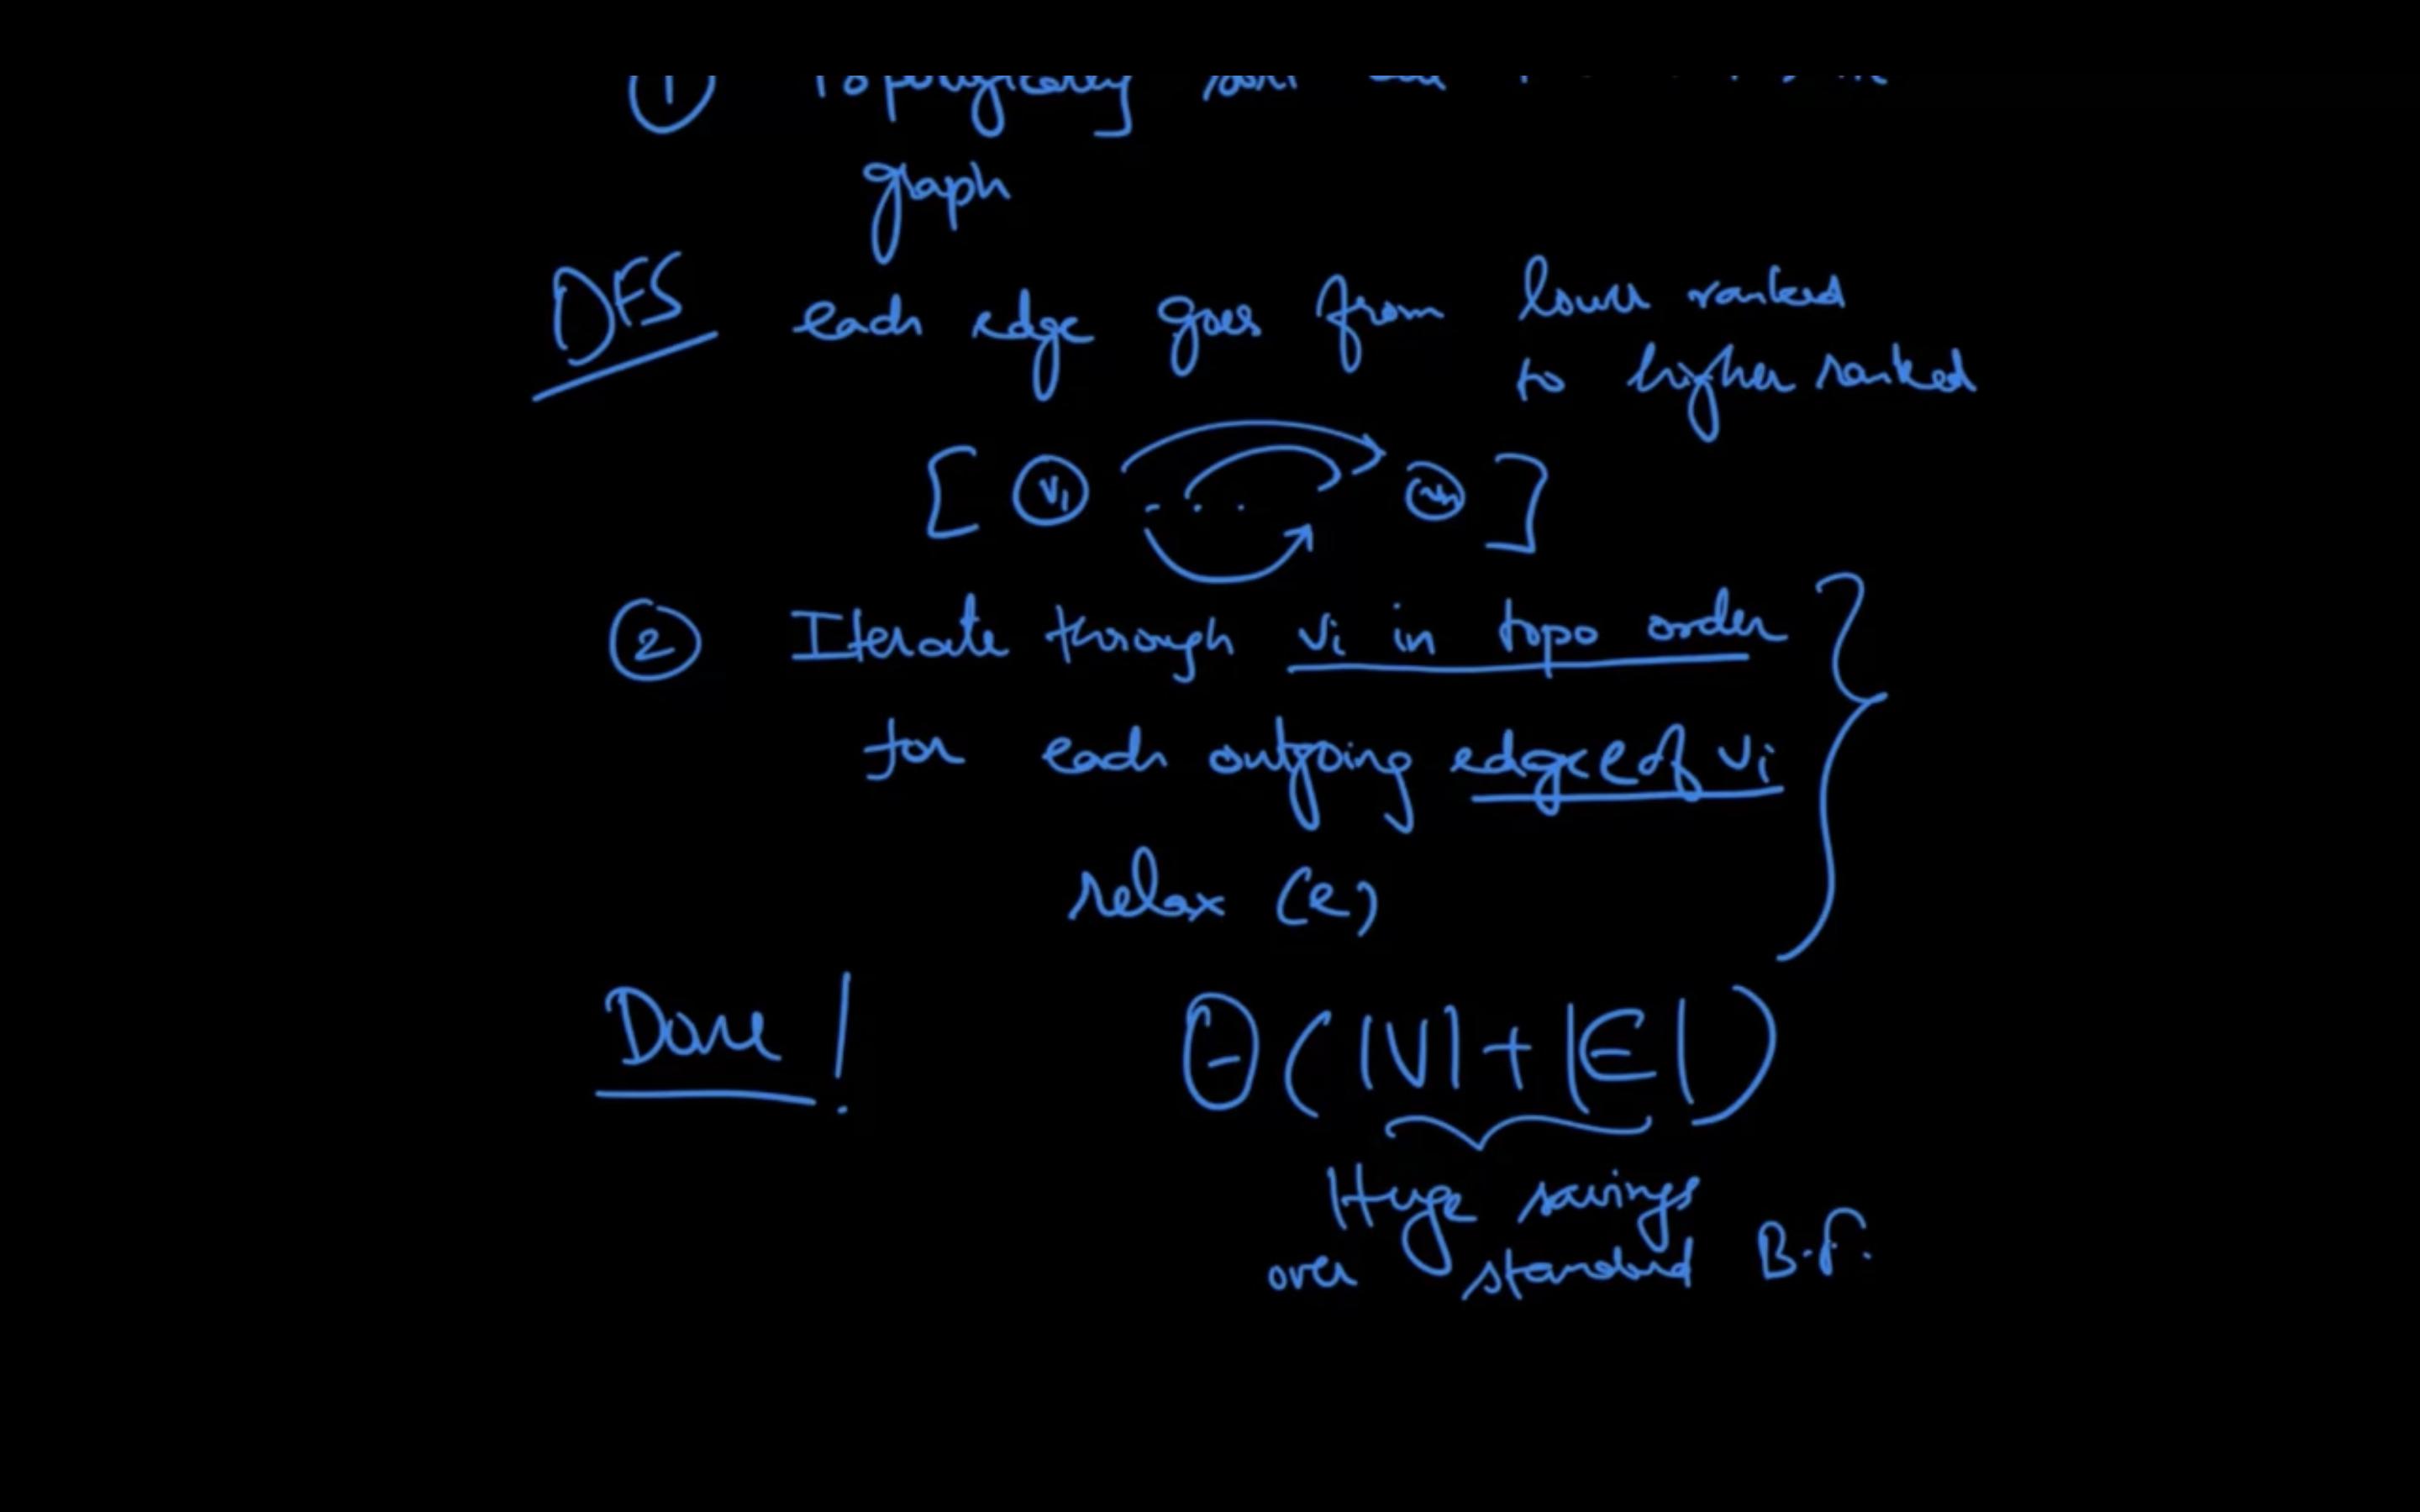 ① Topologically sort
graph
DFS each edge goes from lower ranked
to higher ranked
[ v1 . . . vn ]
② Iterate through vi in topo order
for each outgoing edge e of vi
relax (e)
Done! Θ(|V|+|E|)
Huge savings
over standard B.F.